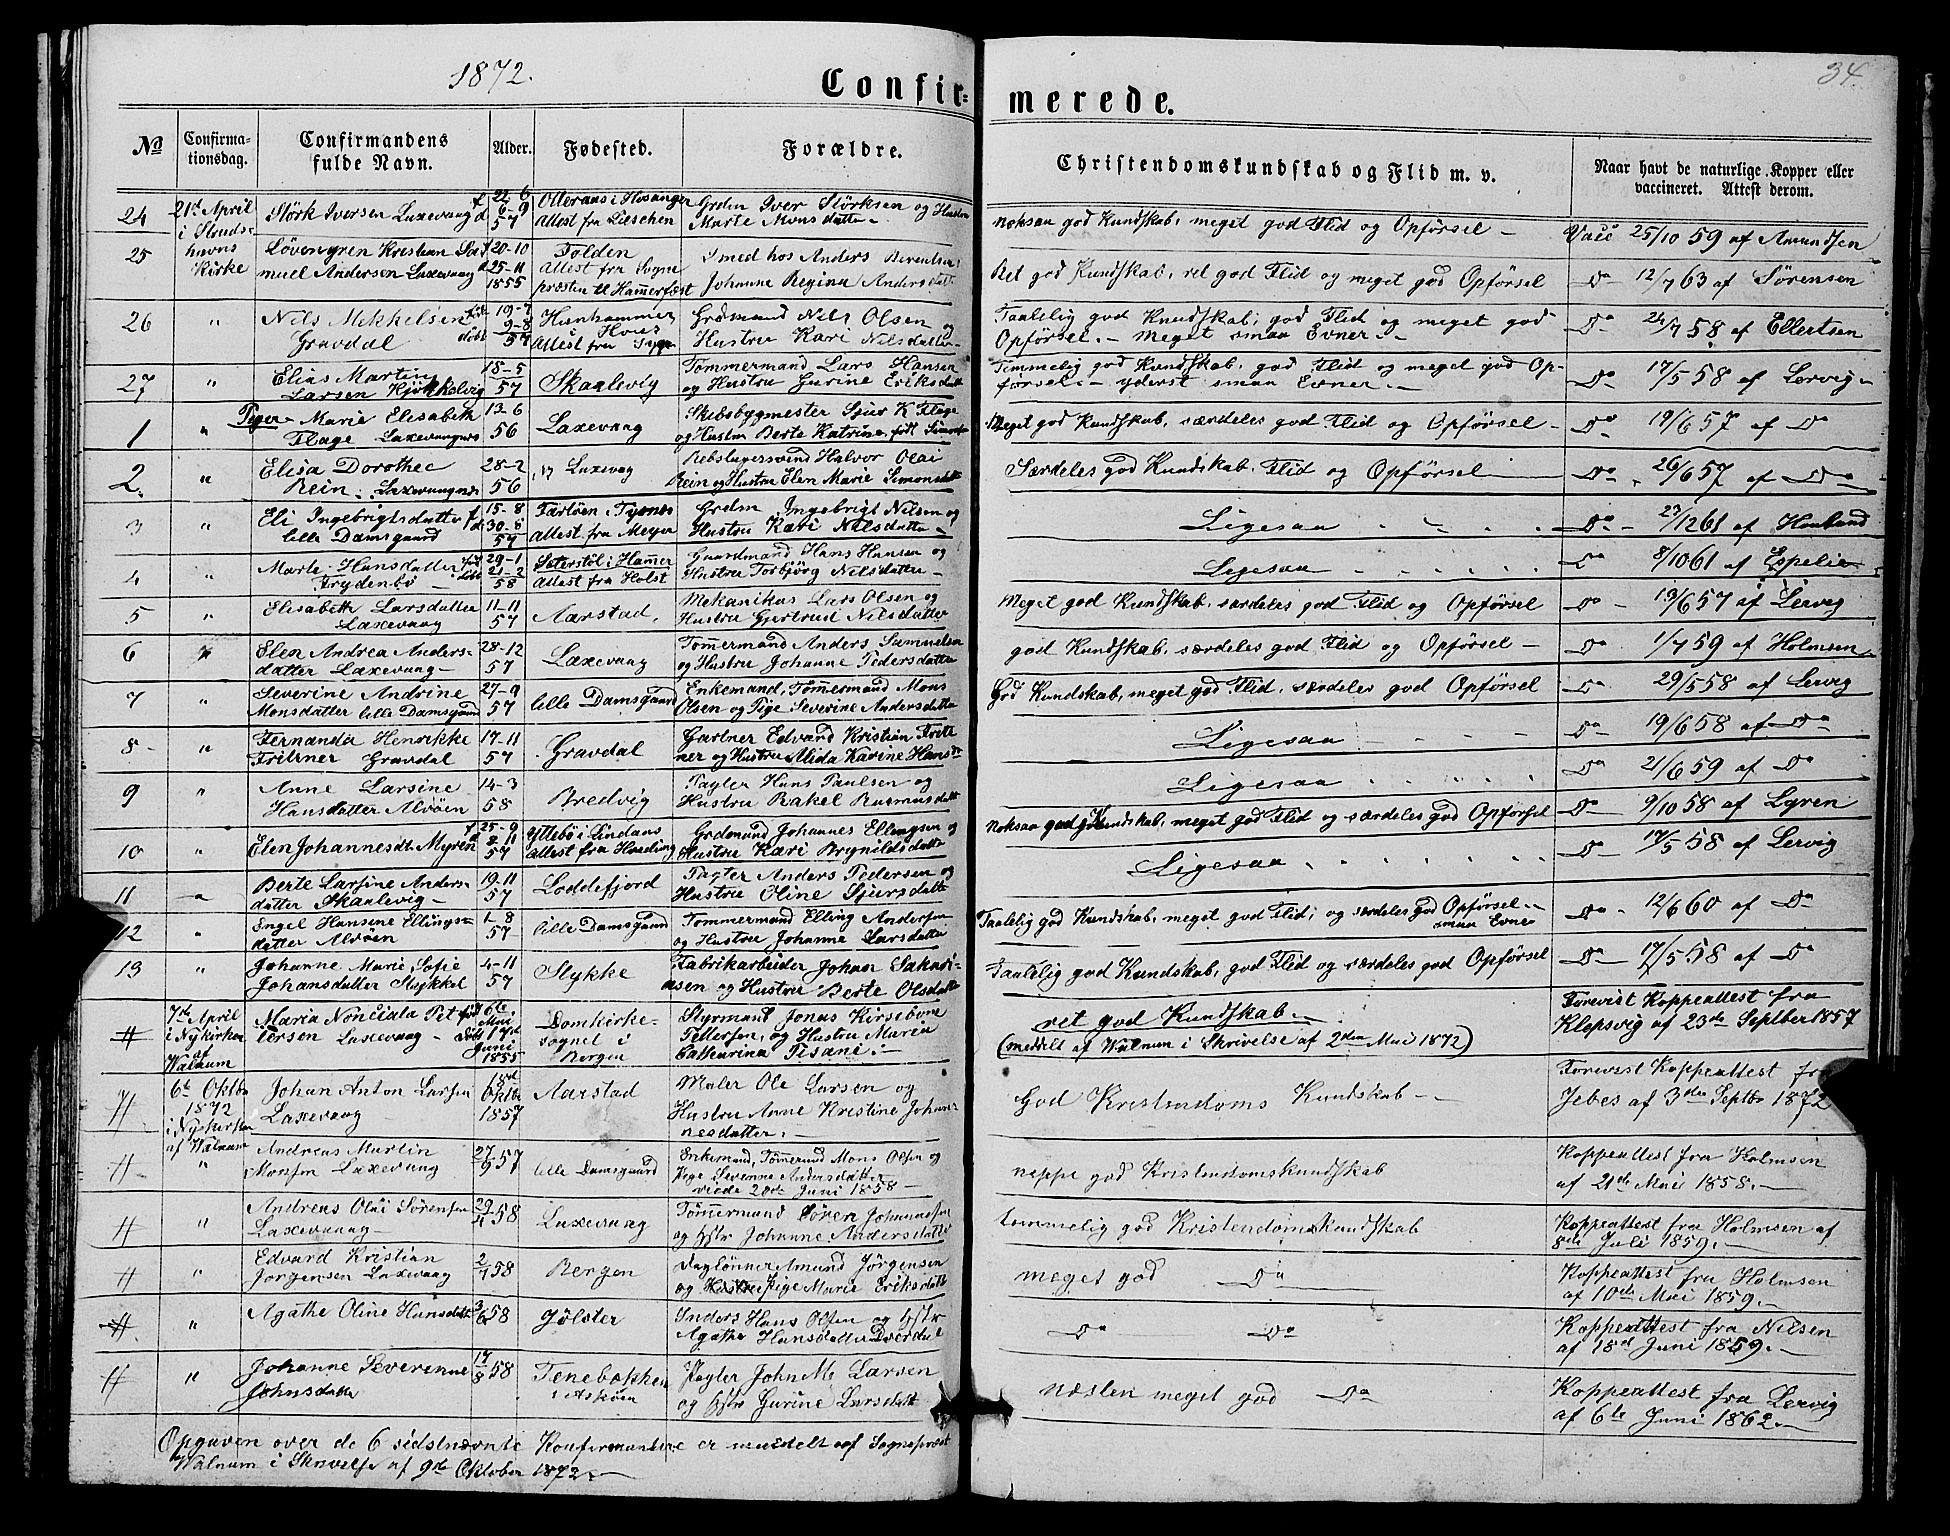 1872.
34.
Confir= merede.
No
Confirma-
tionsdag.
Confirmandens
fulde Navn.
Alder.
Fødested.
Forældre.
Christendomskundskab og Flid m. v.
Naar havt de naturlige Kopper eller
vaccineret. Attest derom.
24 21de April
i Struds-
havns
Kirke
Størk Iversen Laxevaag f 22-6 d 6-9 57
Ollersaas i Hosanger
Attest fra Lieschen
Grdm Iver Størksen og Hustru
Marte Monsdatter
noksaa god Kundskab, meget god Flid og Opførsel –
Vacc 25/10 59 af Amundsen
25 Løvengren Kristian Sa-
muel Andersen Laxevaag
f 20-10 d 25-11 1855
Folden
Attest fra Sogne
præsten til Hammerfest
Smed hos Anders Berentsen
Johanne Regina Andersdatter
Ret god Kundskab, ret god Flid og meget god Opførsel
Do 12/7 63 af Sørensen
26 " Nils Mikkelsen
Gravdal
født 19-7 døbt 9-8 57
Hornhammer
i Hoves
Attest fra Sogn
Grdmand Nils Olsen og
Hustru Kari Nilsdatter
Taalelig god Kundskab, god Flid og meget god
Opførsel. – Meget smaa Evner. –
Do 24/7 58 af Ellertsen
27 " Elias Martin
Larsen Kjøkkelvig
18-5 57
Skaalevig
Tømmermand Lars Hansen
og Hustru Gurine Eriksdatter
Temmelig god Kundskab, god Flid og meget god Op-
førsel. – yderst smaa Evner. –
Do 17/5 58 af Lervig
Piger
1 " Marie Elisabeth
Flage Laxevaagnes
13-6 56
Laxevaag
Skibsbygmester Sjur K Flage
og Hustru Berte Katrine født Simonsen
Meget god Kundskab, særdeles god Flid og Opførsel –
Do 19/6 57 af Do
2. " Elisa Dorothea
Rein. Laxevaagnes
28-2 56
Laxevaag
Rebslagersvend Halvor Olai
Rein og Hustru Elen Marie Simonsdatter
Særdeles god Kundskab, Flid og Opførsel
Do 26/6 57 af Do
3 " Eli Ingebrigtsdatter
lille Damsgaard
f 15-8 d 30-6 57
Færløen i Tysnes
Attest fra Meyer
Grdm Ingebrigt Nilsen og
Hustru Kari Nilsdatter
Ligesaa
Do 23/12 61 af Haaland
4 " Marte Hansdatter
Frydenbø
født 29-1 døbt 21-2 58
Sæterstøl i Hammer
Attest fra Holst
Gaardmand Hans Hansen og
Hustru Torbjørg Nilsdatter
Ligesaa
Do 8/10 61 af Espelie
5 " Elisabeth Larsdatter
Laxevaag
11-11 57
Aarstad,
Mekanikus Lars Olsen og
Hustru Gjertrud Nilsdatter
Meget god Kundskab, særdeles god Flid og Opførsel
Do 13/6 57 af Lervig
6 " Elen Andrea Anders-
datter Laxevaag –
28-12 57
Laxevaag
Tømmermand Anders Samuelsen
og Hustru Johanne Pedersdatter
god Kundskab, særdeles god Flid og Opførsel –
Do 1/7 59 af Holmsen
7 " Severine Andrine
Monsdatter lille Damsgaard
27-9 57
lille Damsgaard
Enkemand, Tømmermand Mons
Olsen og Pige Severine Andersdatter
God Kundskab, meget god Flid, særdeles god Opførsel
Do 29/5 58 af Lervig
8 " Fernanda Henrikke
Fritzner Gravdal
17-11 57
Gravdal
Gartner Edvard Kristian Fritz
ner og Hustru Alida Karine Hansdr
Ligesaa
Do 19/6 58 af Do
9 " Anne Larsine
Hansdatter Alvøen
14-3 58
Bredvig
Pagter Hans Paulsen og
Hustru Rakel Rasmusdatter
Ligesaa
Do 21/6 59 af Do
10 " Elen Johannesdt. Myren
f 25-9 d 8-11 57
Yttebø i Lindaas
Attest fra Harding
Grdmand Johannes Ellingsen og
Hustru Kari Brynildsdatter
Noksaa god Kundskab, meget god Flid og særdeles god Opførsel
Do 9/10 58 af Lyren
11 " Berte Larsine Anders-
datter Skaalevig –
19-11 57
Loddefjord
Pagter Anders Pedersen og
Hustru Oline Sjursdatter
Ligesaa
Do 17/5 58 af Lervig
12 " Engel Hansine Ellings-
datter Alvøen
1-8 57
lille Damsgaard
Tømmermand Elling Andersen
og Hustru Johanne Larsdatter
Taalelig god Kundskab, meget god Flid, og særdeles god Opførsel. –
smaa Evner
Do 12/6 60 af Do
13 " Johanne Marie Sofie
Johansdatter Stykket
4-11 57
Stykke
Fabrikarbeider Johan Sakari-
asen og Hustru Berte Olsdatter
Taalelig god Kundskab, god Flid og særdeles god Opførsel
Do 17/5 58 af Do
# 7de April
i Nykirken
af
Walnum
Maria Nonciata Pet-
tersen Laxevaag –
født 6te Mai døbt 17de Juni 1855
Domkirke-
sognet i
Bergen
Styrmand Jonas Kirsebom
Pettersen, og Hustru Maria
Catharina Pisani. –
ret god Kundskab. –
(meddelt af Walnum i Skrivelse af 2den Mai 1872)
Forevist Koppeattest fra
Klopsvig af 23de Septber 1857
# 6te Oktbr
1872
i Nykirken
af Walnum
Johan Anton Larsen
Laxevaag
Oktbr 1857
Aarstad
Maler Ole Larsen og
Hustru Anne Kristine Johan-
nesdatter. –
God Kristendoms Kundskab –
Forevist Koppeattest fra
Jebes af 3die Septbr 1872
# " Andreas Martin
Monsen Laxevaag
27/9 57
lille Damsgaard
Enkemand, Tømmermand Mons Olsen og
Pige Severine Andersdatter
viede 20de Juni 1858 –
neppe god Kristendomskundskab
Koppeattest fra Holmsen
af 21de Mai 1858. –
# " Andreas Olai Sørensen
Laxevaag –
29/4 58
Laxevaag
Tømmermand Søren Johannesen
og Hstr Johanne Andersdatter
temmelig god Kristendomskundskab
Koppeattest fra Holmsen af
8de Juli 1859. –
# " Edvard Kristian
Jørgensen Laxevaag
2/7 58
Bergen
Daglønner Amund Jørgensen
og Hustru Pige Marie Eriksdatter
meget god Do
Koppeattest fra Holmsen
af 10de Mai 1859. –
# " Agathe Oline Hansdatter
3/6 58
Jølster
Inders Hans Olsen og Hstr
Agathe Hansdatter Dverdal
Do Do
Koppeattest fra Nilsen
af 18de Juni 1859. –
# " Johanne Severinne
Johnsdatter
17/8 58
Tenebekken
i Askøen
Pagter John M. Larsen
og Hstr Gurine Larsdatter
næsten meget god Do
Koppeattest fra Lervig
af 6te Juni 1862. –
Opgaven over de 6 sidstnævnte Konfirmanter er meddelt af Sognepræst
Walnum i Skrivelse af 9de Oktober 1872. –